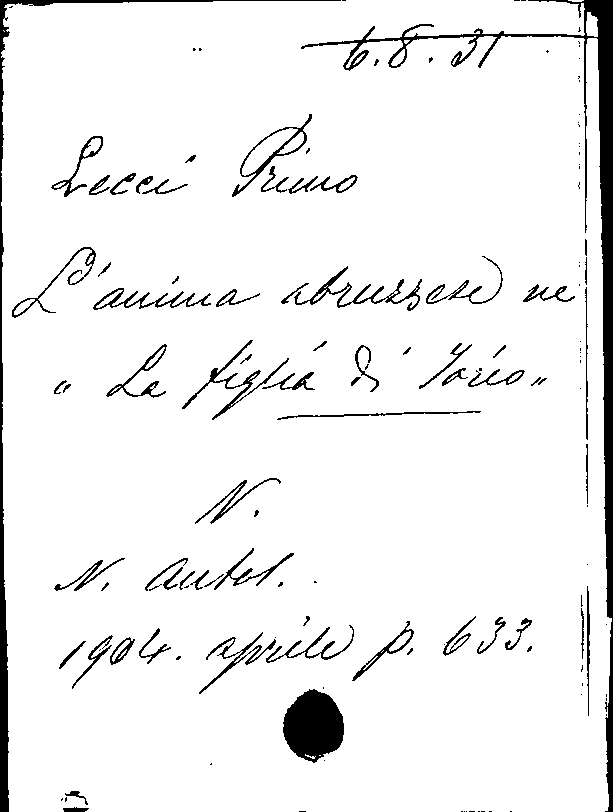 6.8.31
Lecci Primo
L'anima abruzzese ne
" La figlia di Iorio "
N.
N. Antol.
1904. aprile p. 633.